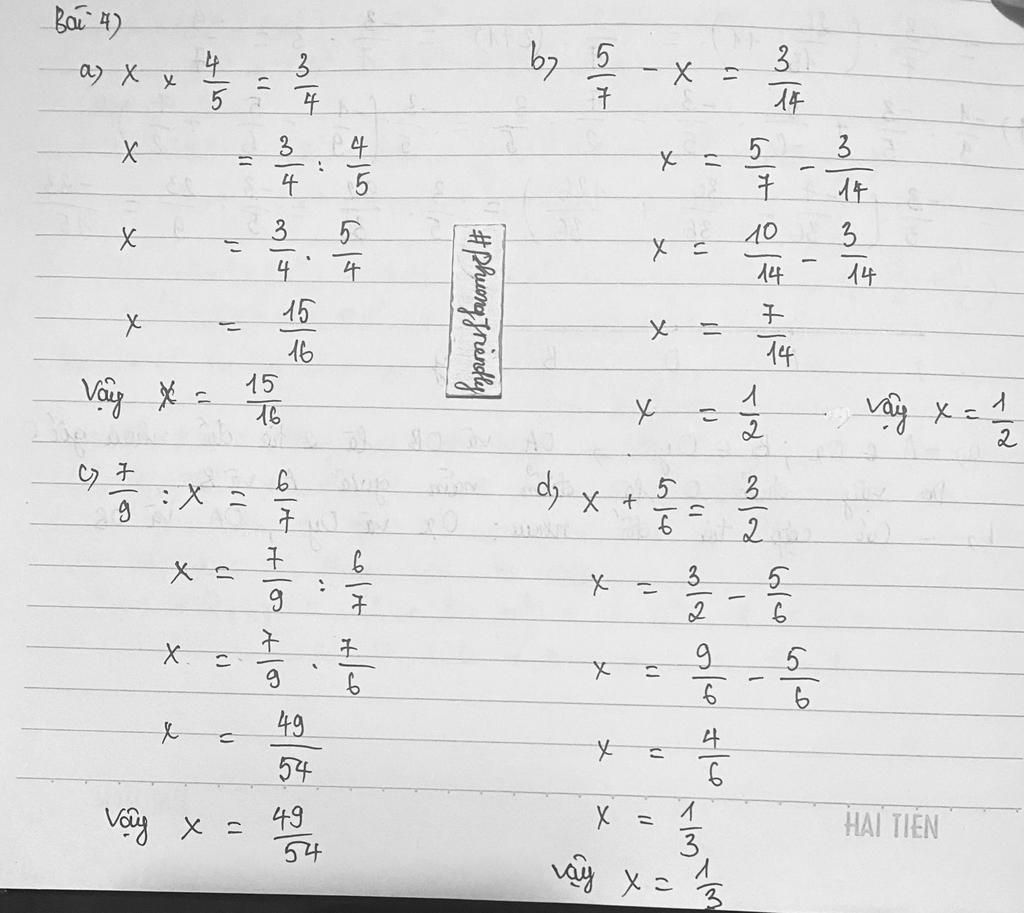 Bài 7)
a) x × 4/5 = 3/4
x = 3/4 : 4/5
x = 3/4 . 5/4
x = 15/16
Vậy x = 15/16
b) 5/7 - x = 3/14
x = 5/7 - 3/14
x = 10/14 - 3/14
x = 7/14
x = 1/2 Vậy x = 1/2
#phuongfriendly
c) 7/9 : x = 6/7
x = 7/9 : 6/7
x = 7/9 . 7/6
x = 49/54
Vậy x = 49/54
d) x + 5/6 = 3/2
x = 3/2 - 5/6
x = 9/6 - 5/6
x = 4/6
x = 1/3
Vậy x = 1/3
HAI TIEN